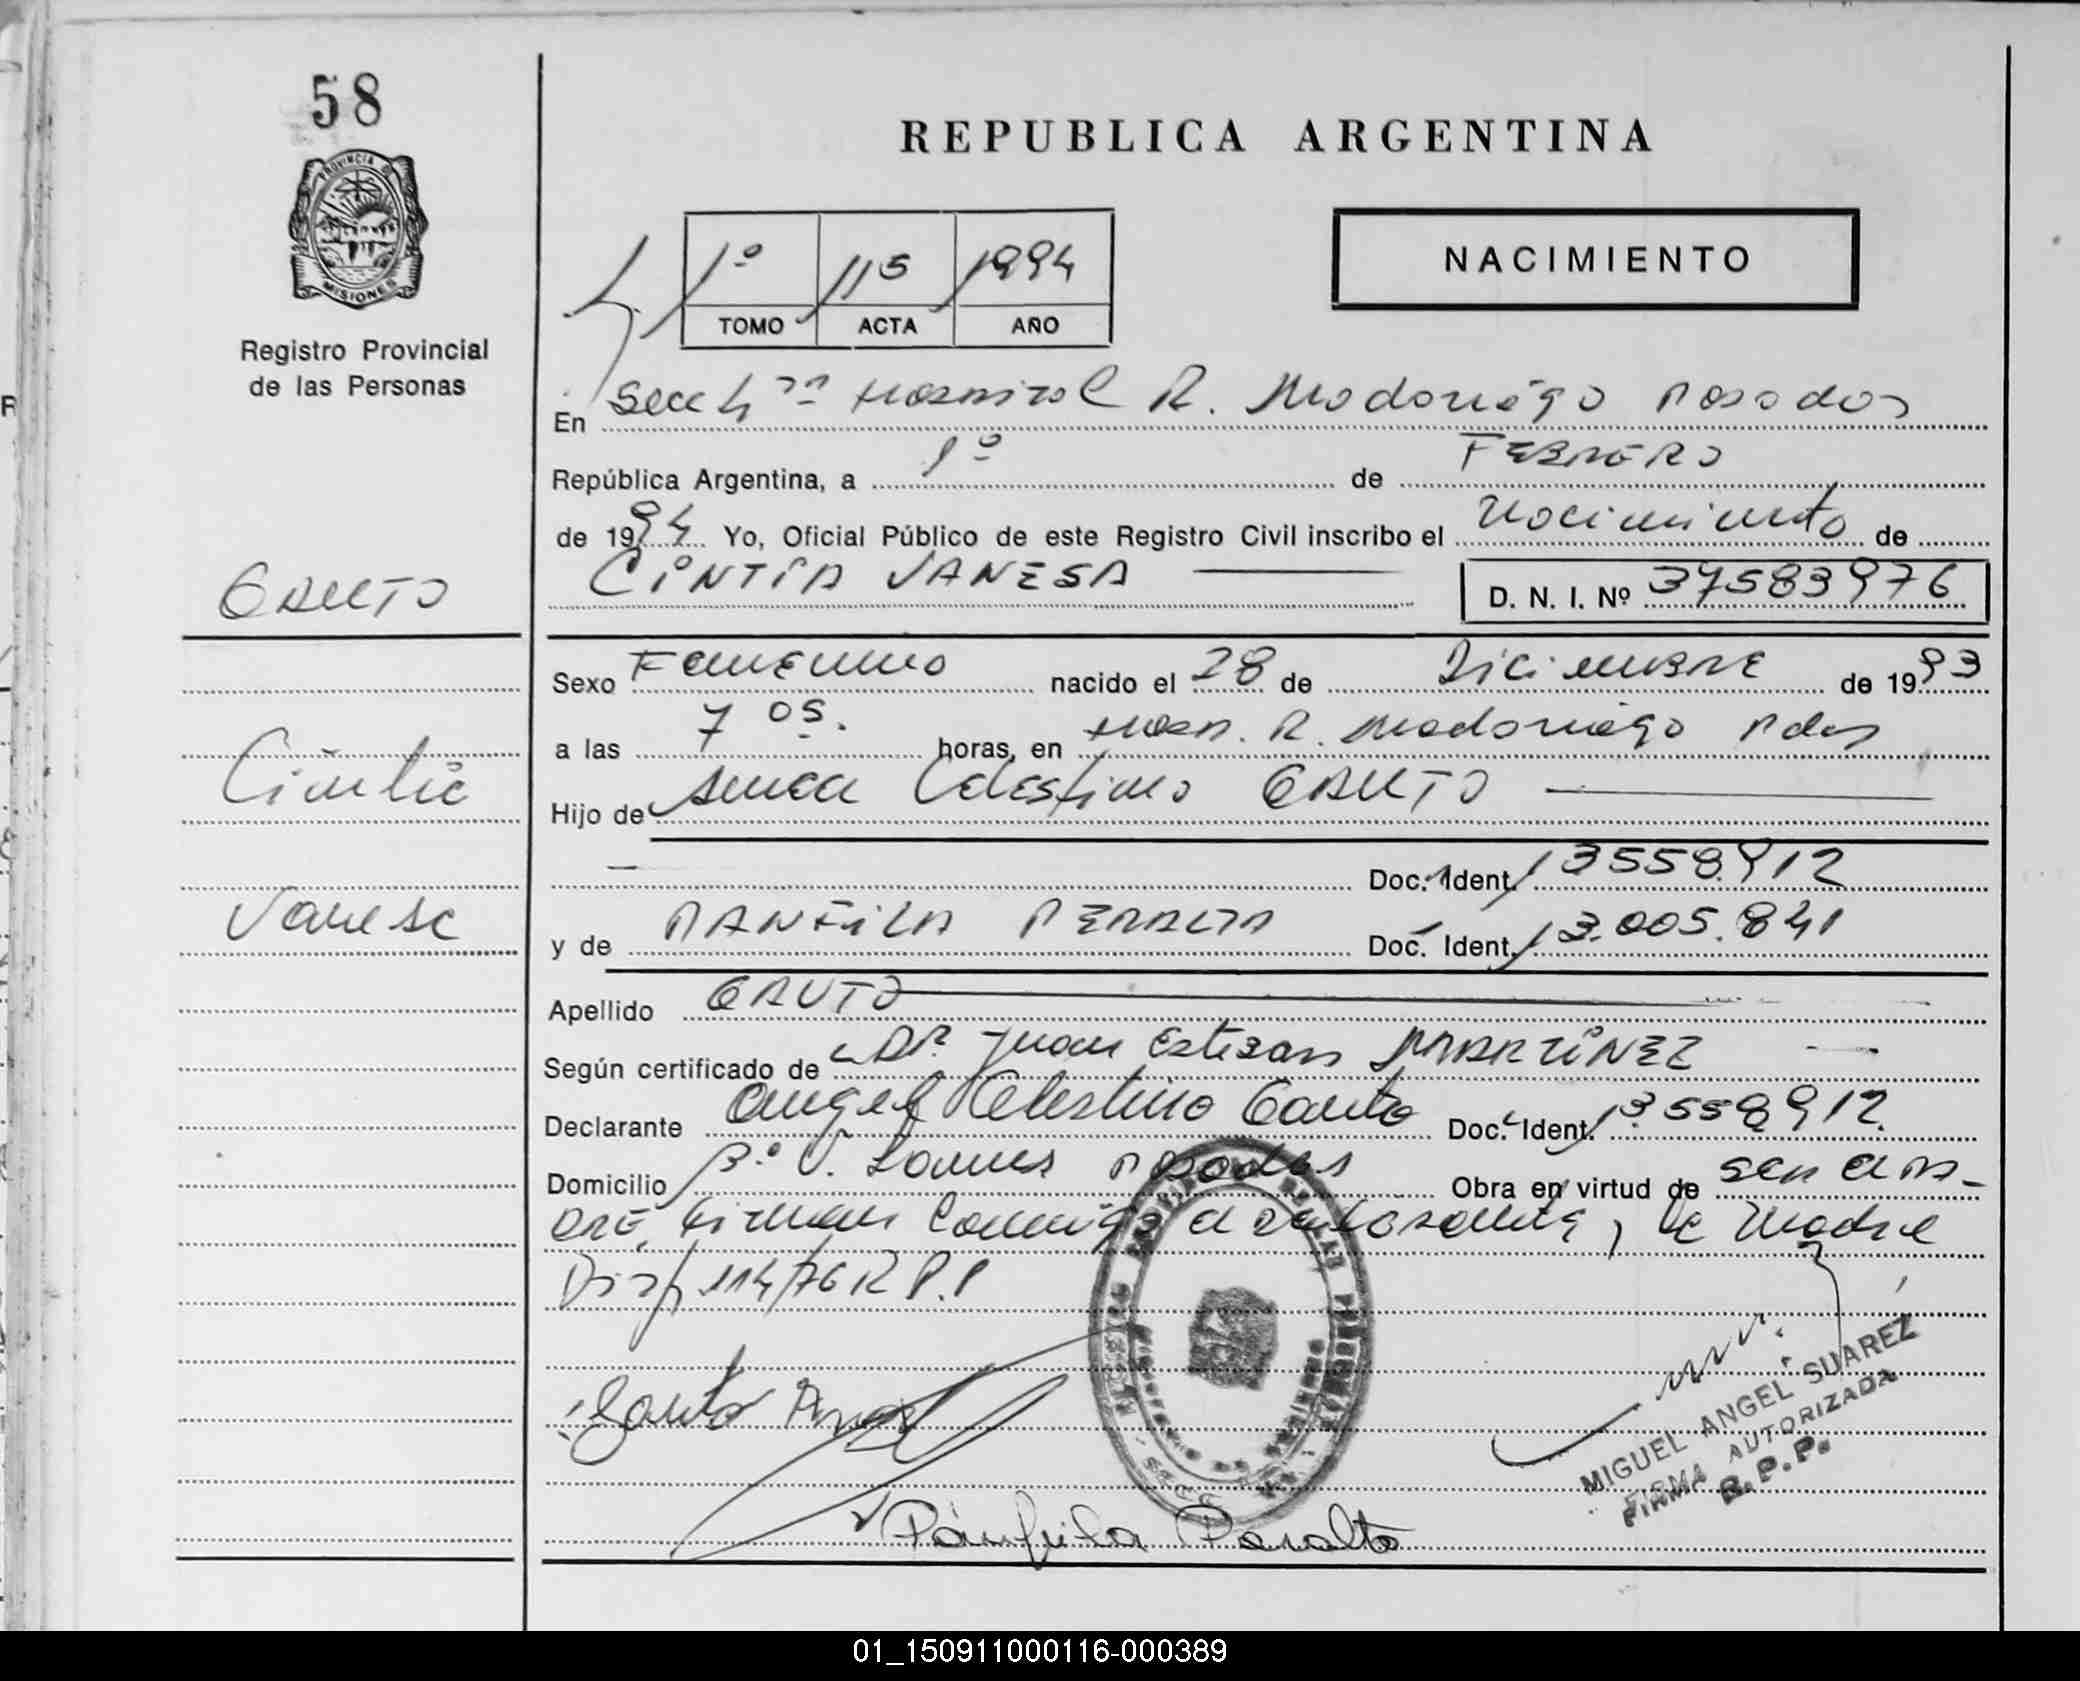 58
PROVINCIA DE
MISIONES
Registro Provincial
de las Personas
REPUBLICA ARGENTINA
NACIMIENTO
1º 115 1994
TOMO ACTA AÑO
En Secc 4 Hospital R. Madariaga Posadas
República Argentina, a 1º de FEBRERO
de 1994 Yo, Oficial Público de este Registro Civil inscribo el Nacimiento de
CINTIA VANESA D. N. I. Nº 37583976
GAUTO
Cintia
Vanesa
Sexo Femenino nacido el 28 de Diciembre de 1993
a las 7 05. horas, en Hosp. R. Madariaga Pdas
Hijo de Angel Celestino GAUTO
Doc. Ident. 13558912
y de PANFILA PERALTA Doc. Ident. 13.005.841
Apellido GAUTO
Según certificado de DR. Juan Esteban MARTINEZ
Declarante Angel Celestino Gauto Doc. Ident. 13558912
Domicilio Bº V. Posadas Obra en virtud de ser el PA-
DRE, Firman Conmigo el declarante, la Madre
Disp. 114/76 R P.P
Gauto Angel
Pánfila Peralta
MIGUEL ANGEL SUAREZ
FIRMA AUTORIZADA
R.P.P.
01_150911000116-000389